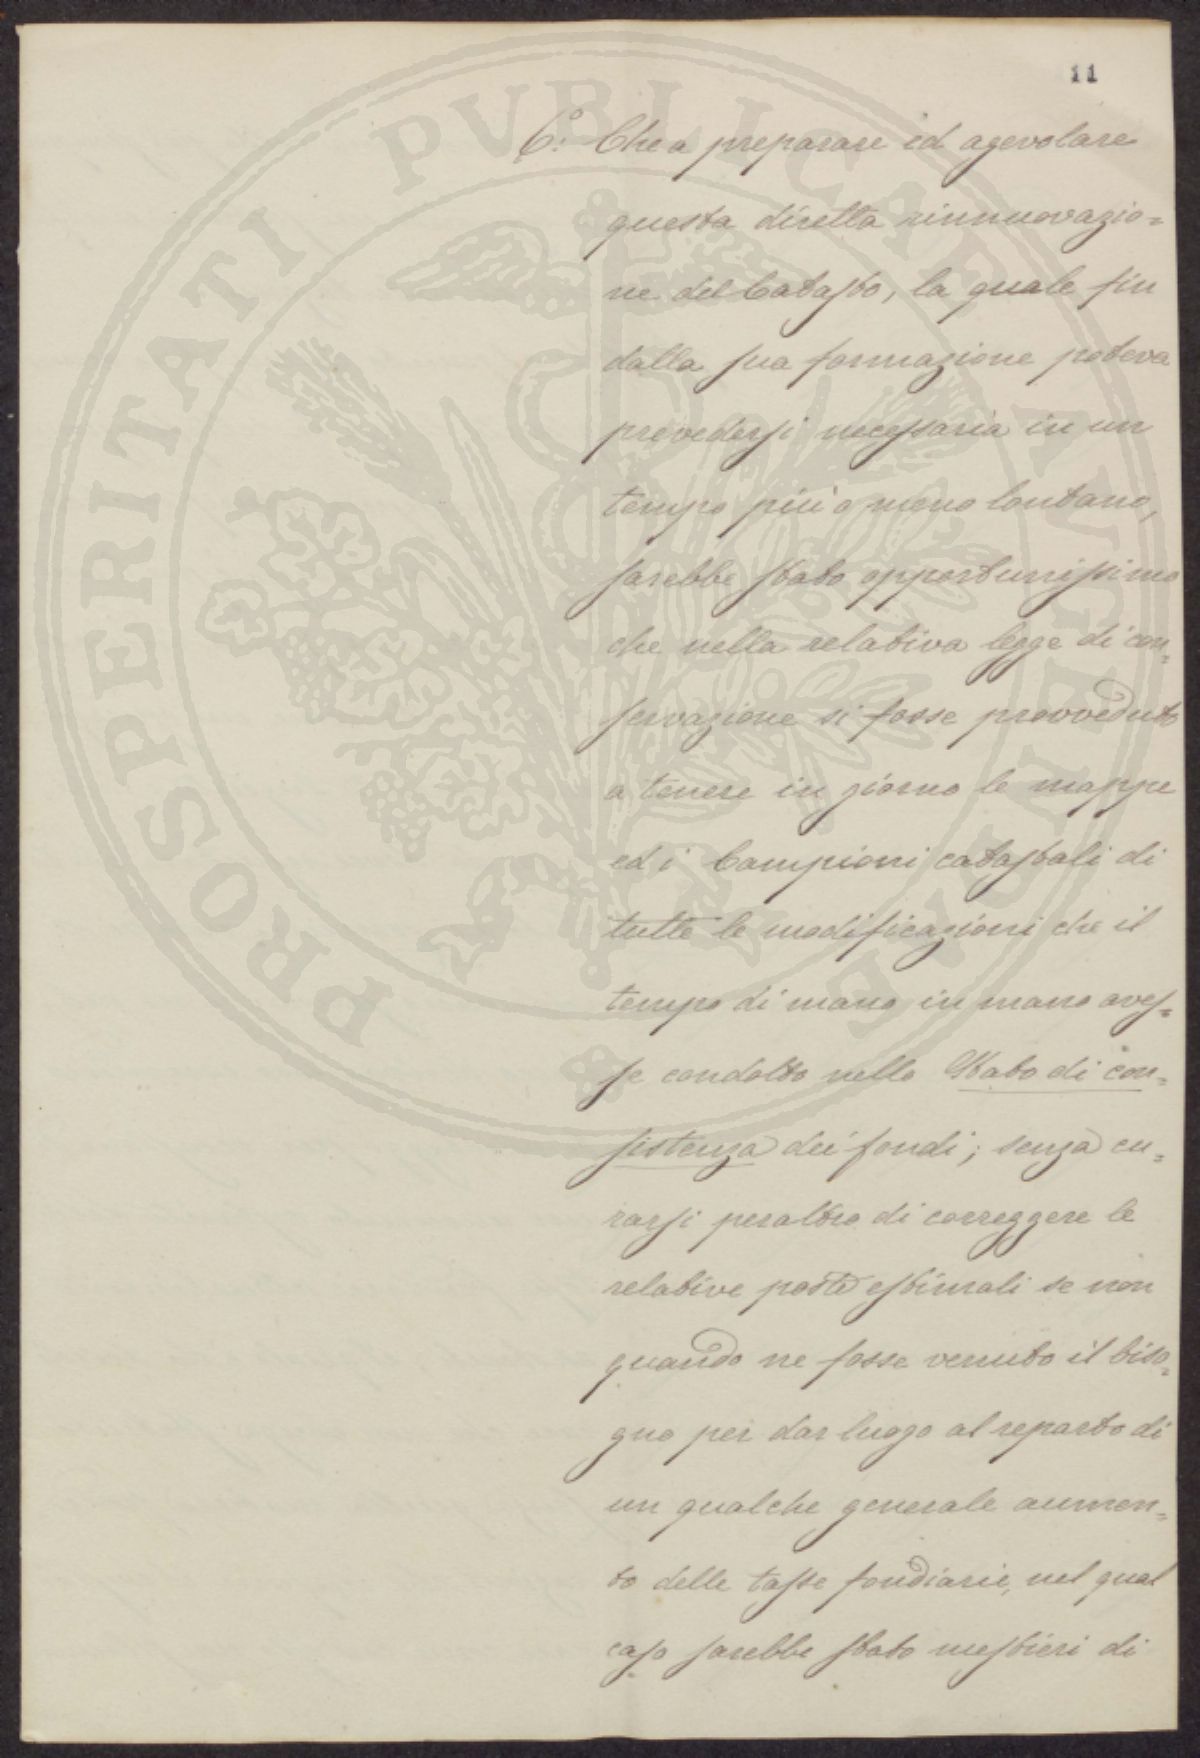 11
6.° Che a preparare ed agevolare
questa diretta rinnuovazio=
ne del Catasto, la quale fin
dalla sua formazione poteva
prevedersi necessaria in un
tempo più o meno lontano,
sarebbe stato opportunissimo
che nella relativa legge di con=
servazione si fosse provveduto
a tenere in giorno le mappe
ed i Campioni catastali di
tutte le modificazioni che il
tempo di mano in mano aves=
se condotto nello Stato di con=
sistenza dei fondi; senza cu=
rarsi peraltro di correggere le
relative poste estimali se non
quando ne fosse venuto il biso=
gno per dar luogo al reparto di
un qualche generale aumen=
to delle tasse fondiarie, nel qual
caso sarebbe stato mestieri di
PROSPERITATI PVBLICAE AVGENDAE